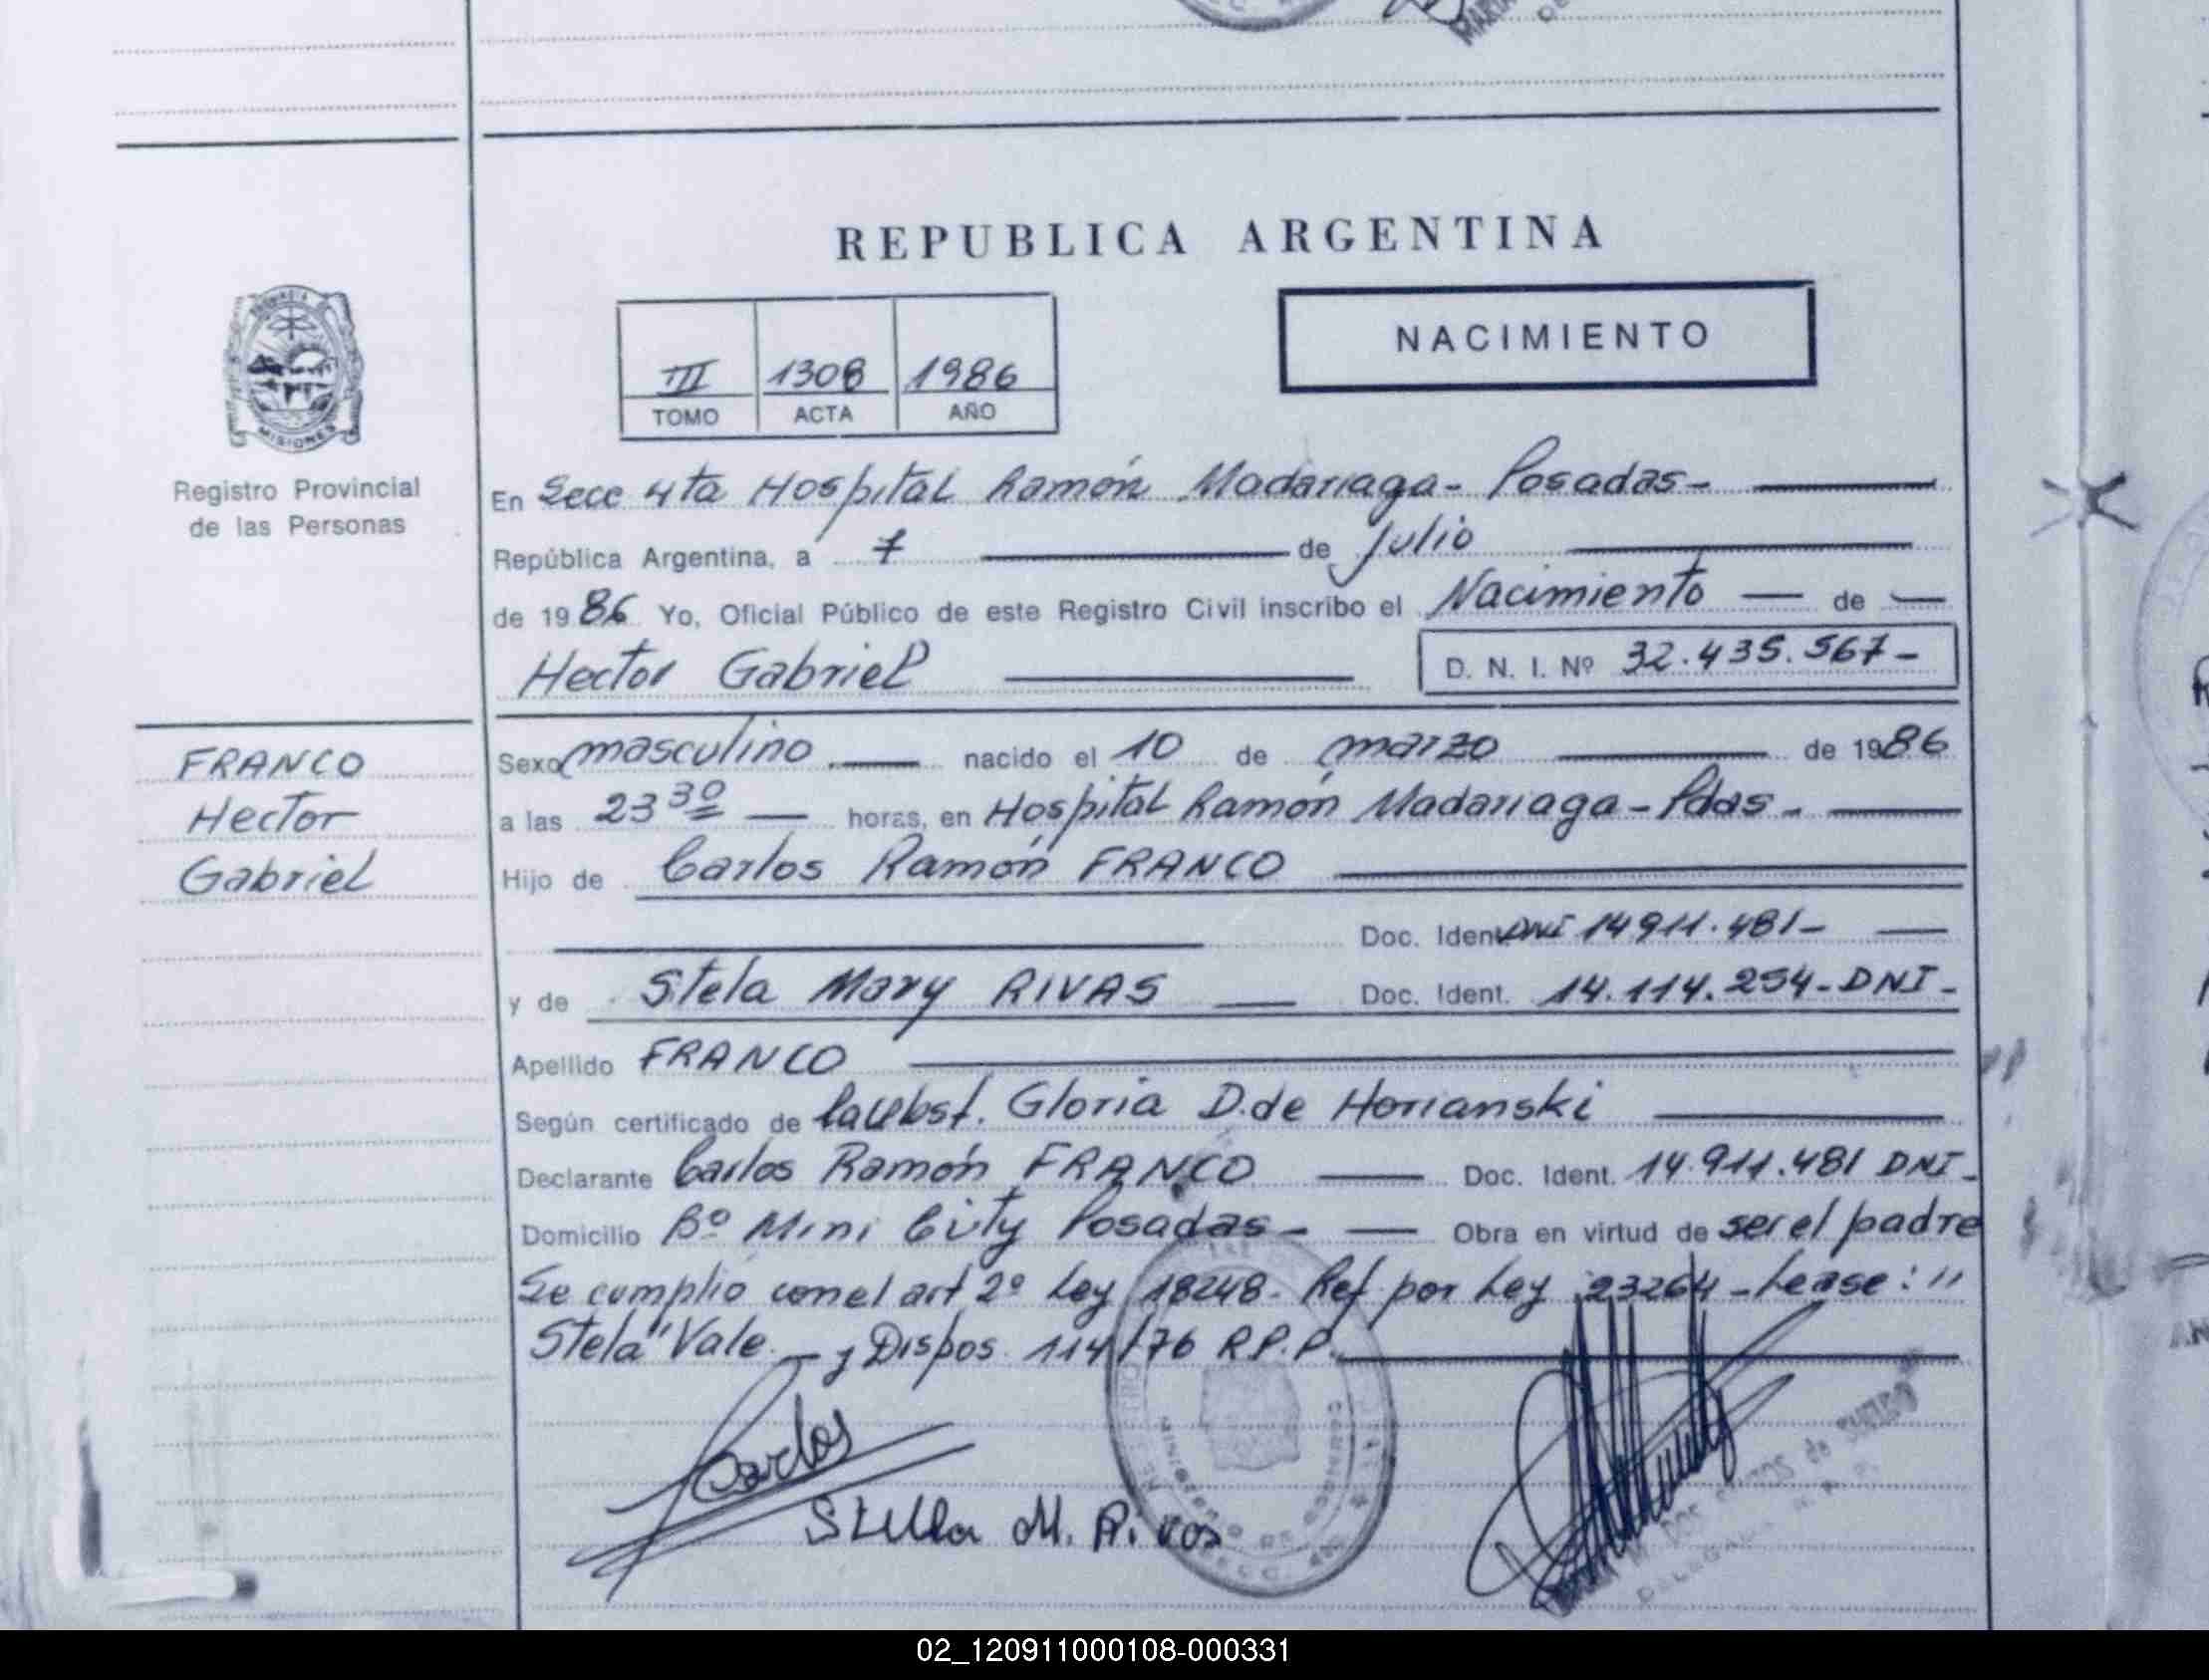 REPUBLICA ARGENTINA
NACIMIENTO
III 1308 1986
TOMO ACTA AÑO
MISIONES
Registro Provincial
de las Personas
En Secc 4ta Hospital Ramón Madariaga- Posadas-
República Argentina, a 7 de Julio
de 1986 Yo, Oficial Público de este Registro Civil inscribo el Nacimiento de
Hector Gabriel D. N. I. Nº 32.435.567-
FRANCO
Hector
Gabriel
Sexo masculino nacido el 10 de marzo de 1986
a las 23 30 horas, en Hospital Ramón Madariaga - Pdas -
Hijo de Carlos Ramón FRANCO
Doc. Ident DNI 14911.481-
y de Stela Mary RIVAS Doc. Ident. 14.114.254-DNI-
Apellido FRANCO
Según certificado de Gloria D.de Horianski
Declarante Carlos Ramón FRANCO Doc. Ident. 14.911.481 DNI-
Domicilio Bº Mini City Posadas- Obra en virtud de ser el padre
Se cumplio con el art 2º Ley 18248- Ref por Ley 23264-Lease: "
Stela" Vale.- y Dispos. 114/76 R.P.P.
Carlos
Stella M. Rivas
02_120911000108-000331